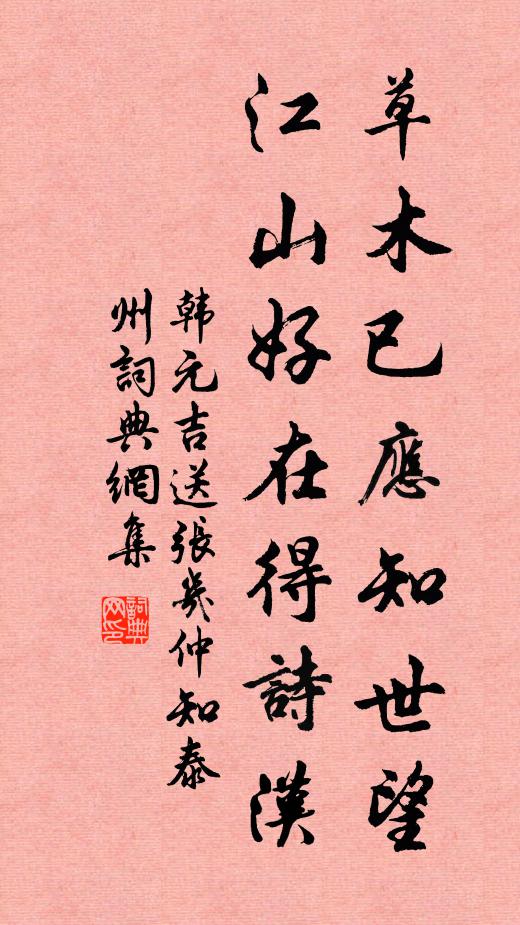 草木已應知世望
江山好在得詩漢
韩元吉送張幾仲知泰
州詞典網集
詞典網印